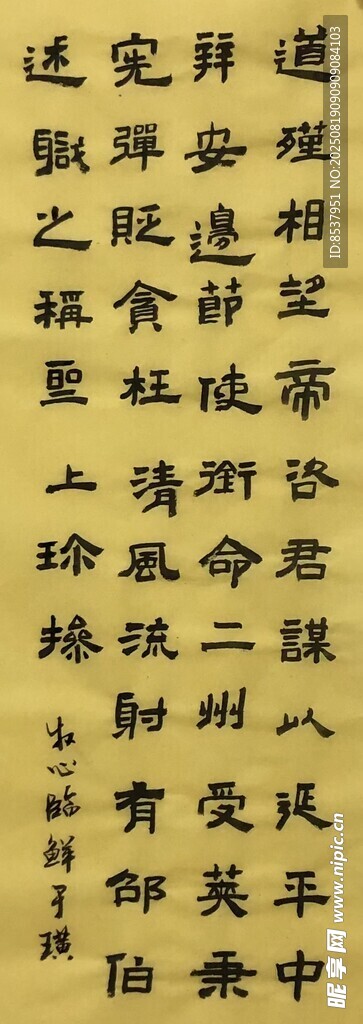 道殣相望帝咨君謀以延平中
拜安邊節使銜命二州受莢秉
憲彈貶貪枉清風流射有邵伯
述職之稱聖上珎操
牧心臨鮮于璜
ID:8537951 NO:20250819090909084103
昵享网 www.nipic.cn